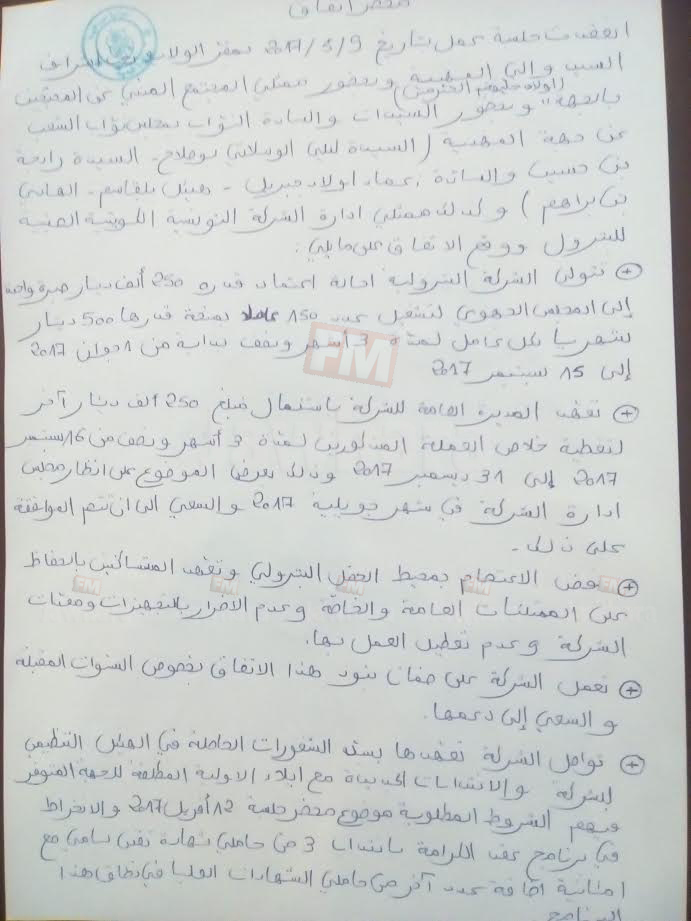 محضر اتفاق
انعقدت جلسة عمل بتاريخ 2017/5/9 بمقر الولاية تحت إشراف
السيد والي المهدية وبحضور ممثلي المجتمع المدني عن المحتجين
(أولاد جاب الله
بالجهة" وبحضور السيدات والسادة النواب بمجلس نواب الشعب
عن جهة المهدية (السيدة ليلى الوسلاتي بوصلاح - السيدة رابحة
بن حسين والسادة: عماد أولاد جبريل - هيثم بلقاسم - الهادي
بن براهم) وكذلك ممثلي إدارة الشركة التونسية الكويتية الصينية
للبترول ووقع الاتفاق على ما يلي:
+ تتولى الشركة البترولية احالة اعتماد قدره 250 ألف دينار مرة واحدة
إلى المجلس الجهوي لتشغيل عدد 150 عاملا بمنحة قدرها 500 دينار
شهريا لكل عامل لمدة 3 أشهر ونصف بداية من 1 جوان 2017
إلى 15 سبتمبر 2017
+ تتعهد المديرة العامة للشركة باستعمال مبلغ 250 الف دينار آخر
لتغطية خلاص العملة المذكورين لمدة 3 أشهر ونصف من 16 سبتمبر
2017 إلى 31 ديسمبر 2017 وذلك بعرض الموضوع على أنظار مجلس
ادارة الشركة في شهر جويلية 2017 والسعي الى ان تتم الموافقة
على ذلك.
+ فض الاعتصام بمحيط الحقل البترولي وتعهد المتساكنين بالحفاظ
على الممتلكات العامة والخاصة وعدم الاضرار بالتجهيزات ومعدات
الشركة وعدم تعطيل العمل بها.
+ تعمل الشركة على ضمان بنود هذا الاتفاق بخصوص السنوات المقبلة
والسعي إلى دعمها.
+ تواصل الشركة تعهدها بسد الشغورات الحاصلة في الهيكل التنظيمي
للشركة والانتدابات الجديدة مع ايلاء الاولوية المطلقة للجهة المتوفر
فيهم الشروط المطلوبة موضوع محضر جلسة 12 أفريل 2017 والانخراط
في برنامج عقد الكرامة بانتداب 3 من حاملي شهادة تقني سامي مع
امكانية اضافة عدد آخر من حاملي الشهادات العليا في نطاق هذا
البرنامج
FM